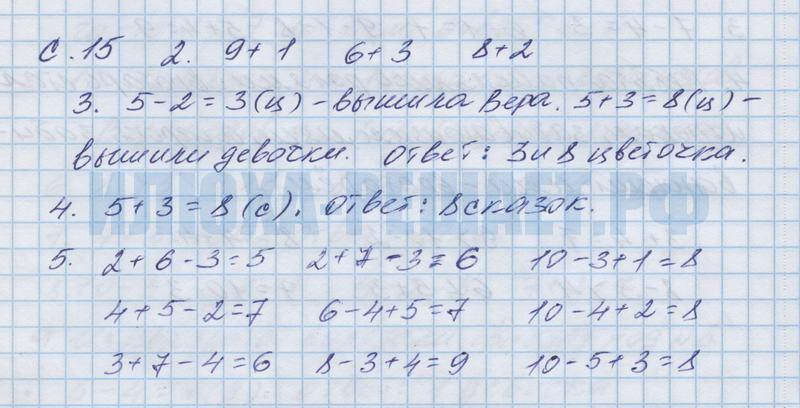 с.15 2. 9+1 6+3 8+2
3. 5-2=3(ц) - вышила Вера. 5+3=8(ц) -
вышили девочки. Ответ: 3 и 8 цветочка.
ИЛЮХА-РЕШАЕТ.РФ
4. 5+3=8(с). Ответ: 8 сказок.
5. 2+6-3=5 2+7-3=6 10-3+1=8
4+5-2=7 6-4+5=7 10-4+2=8
3+7-4=6 8-3+4=9 10-5+3=8